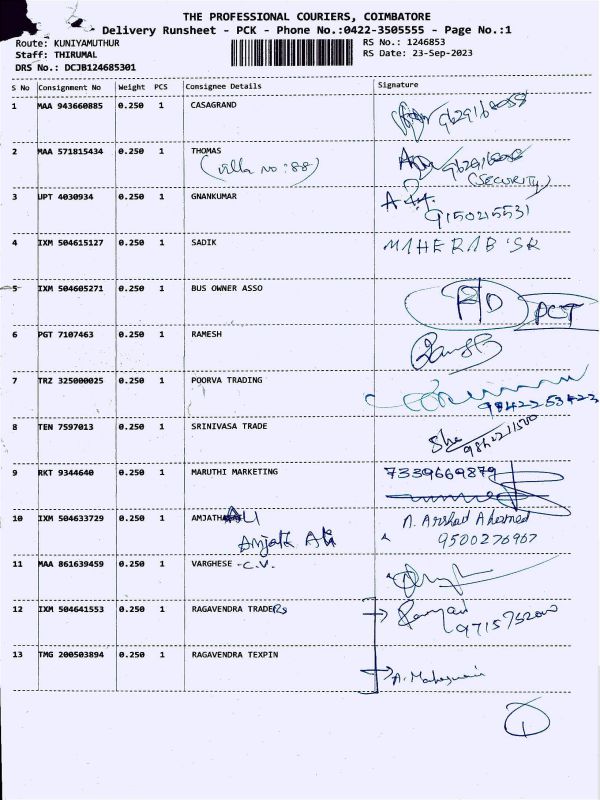 THE PROFESSIONAL COURIERS, COIMBATORE
Delivery Runsheet - PCK - Phone No.:0422-3505555 - Page No.:1
Route: KUNIYAMUTHUR RS No.: 1246853
Staff: THIRUMAL RS Date: 23-Sep-2023
DRS No.: DCJB124685301
S No Consignment No Weight PCS Consignee Details Signature
1 MAA 943660885 0.250 1 CASAGRAND
2 MAA 571815434 0.250 1 THOMAS
(villa no :88) (SECURITY)
3 UPT 4030934 0.250 1 GNANKUMAR
9150215531
4 IXM 504615127 0.250 1 SADIK MAHERAB'SK
5 IXM 504605271 0.250 1 BUS OWNER ASSO
PCST
6 PGT 7107463 0.250 1 RAMESH
7 TRZ 325000025 0.250 1 POORVA TRADING
98422 53423
8 TEN 7597013 1 0.250 SRINIVASA TRADE
9 RKT 9344640 0.250 1 MARUTHI MARKETING 7339669879
10 IXM 504633729 0.250 1 AMJATH ALI N. Arshad Ahemed
Amjath Ali 9500276967
11 MAA 861639459 0.250 1 VARGHESE - C.V.
12 IXM 504641553 0.250 1 RAGAVENDRA TRADERS
13 TMG 200503894 0.250 1 RAGAVENDRA TEXPIN A. Maheswari